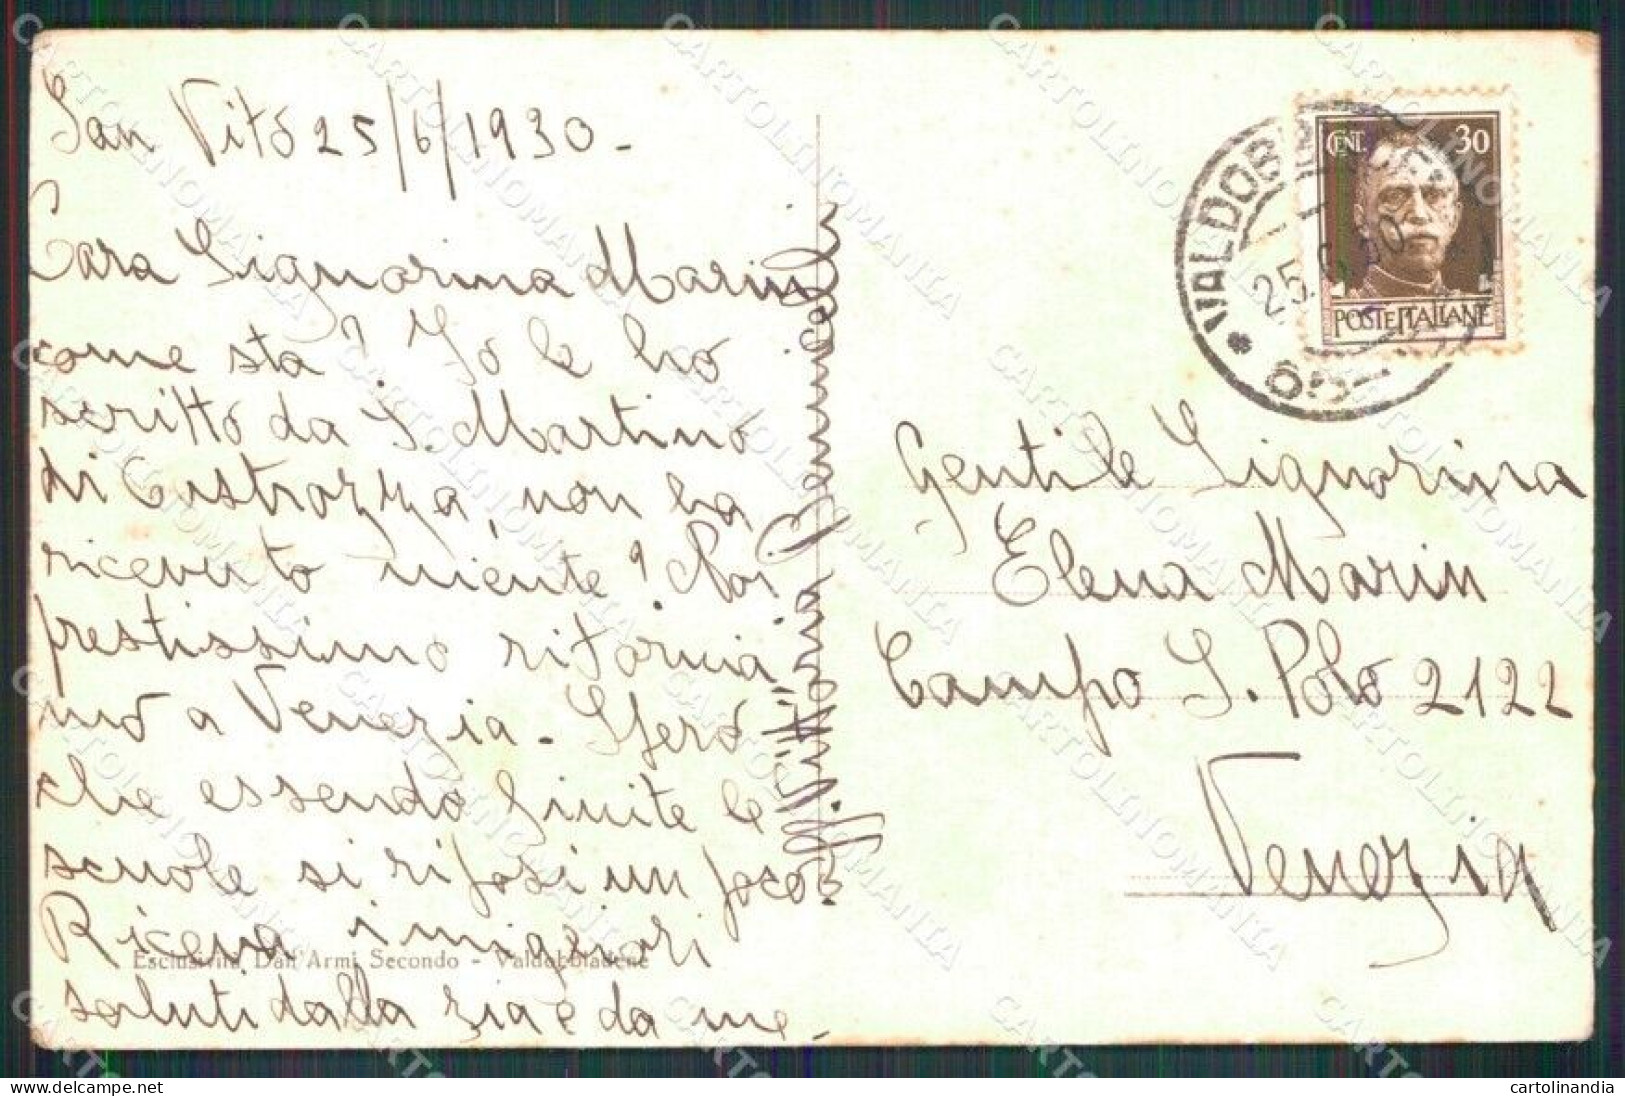 San Vito 25/6/1930 -
Cara Signorina Marin
come sta? Io le ho
scritto da S. Martino
di Castrozza, non ha
ricevuto niente? Noi
prestissimo ritornia-
mo a Venezia - Spero
che essendo finite le
scuole si riposi un poco
Riceva i migliori
saluti dalla zia e da me -
Vittoria
Esclusività Dall'Armi Secondo - Valdobbiadene
CENT. 30
POSTE ITALIANE
25.6.30
Gentile Signorina
Elena Marin
Campo S. Polo 2122
Venezia
CARTOLINOMANIA
cartolinandia